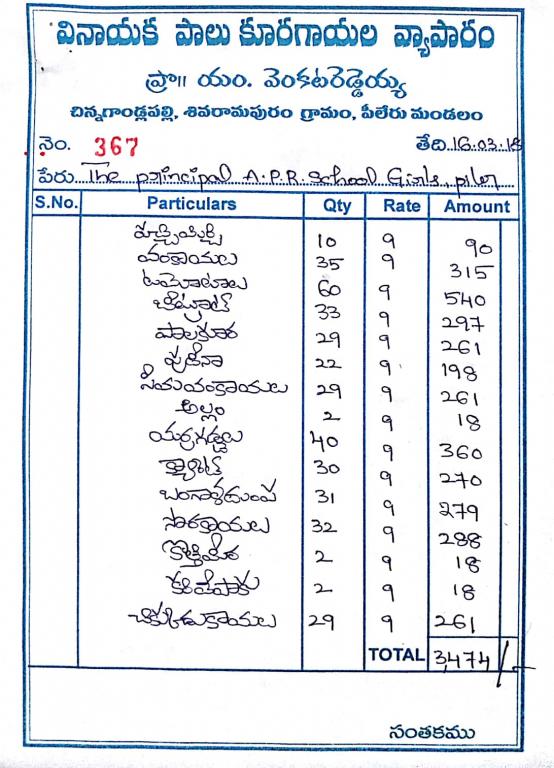 వినాయక పాలు కూరగాయల వ్యాపారం
ప్రొ॥ యం. వెంకటరెడ్డెయ్య
చిన్నగాండ్లపల్లి, శివరామపురం గ్రామం, పీలేరు మండలం
నెం. 367 తేది. 16.03.18
పేరు. The principal A.P.R. School Girls, piler
S.No. Particulars Qty Rate Amount
పచ్చిమిర్చి 10 9 90
వంకాయలు 35 9 315
టమోటాలు 60 9 540
బీట్రూట్ 33 9 297
పాలకూర 29 9 261
పుదీనా 22 9 198
సీమవంకాయలు 29 9 261
అల్లం 2 9 18
యర్రగడ్డలు 40 9 360
క్యారెట్ 30 9 270
బంగాళదుంప 31 9 279
సొరకాయలు 32 9 288
కొత్తిమీర 2 9 18
కరివేపాకు 2 9 18
చిక్కుడుకాయలు 29 9 261
TOTAL 3,474/-
సంతకము